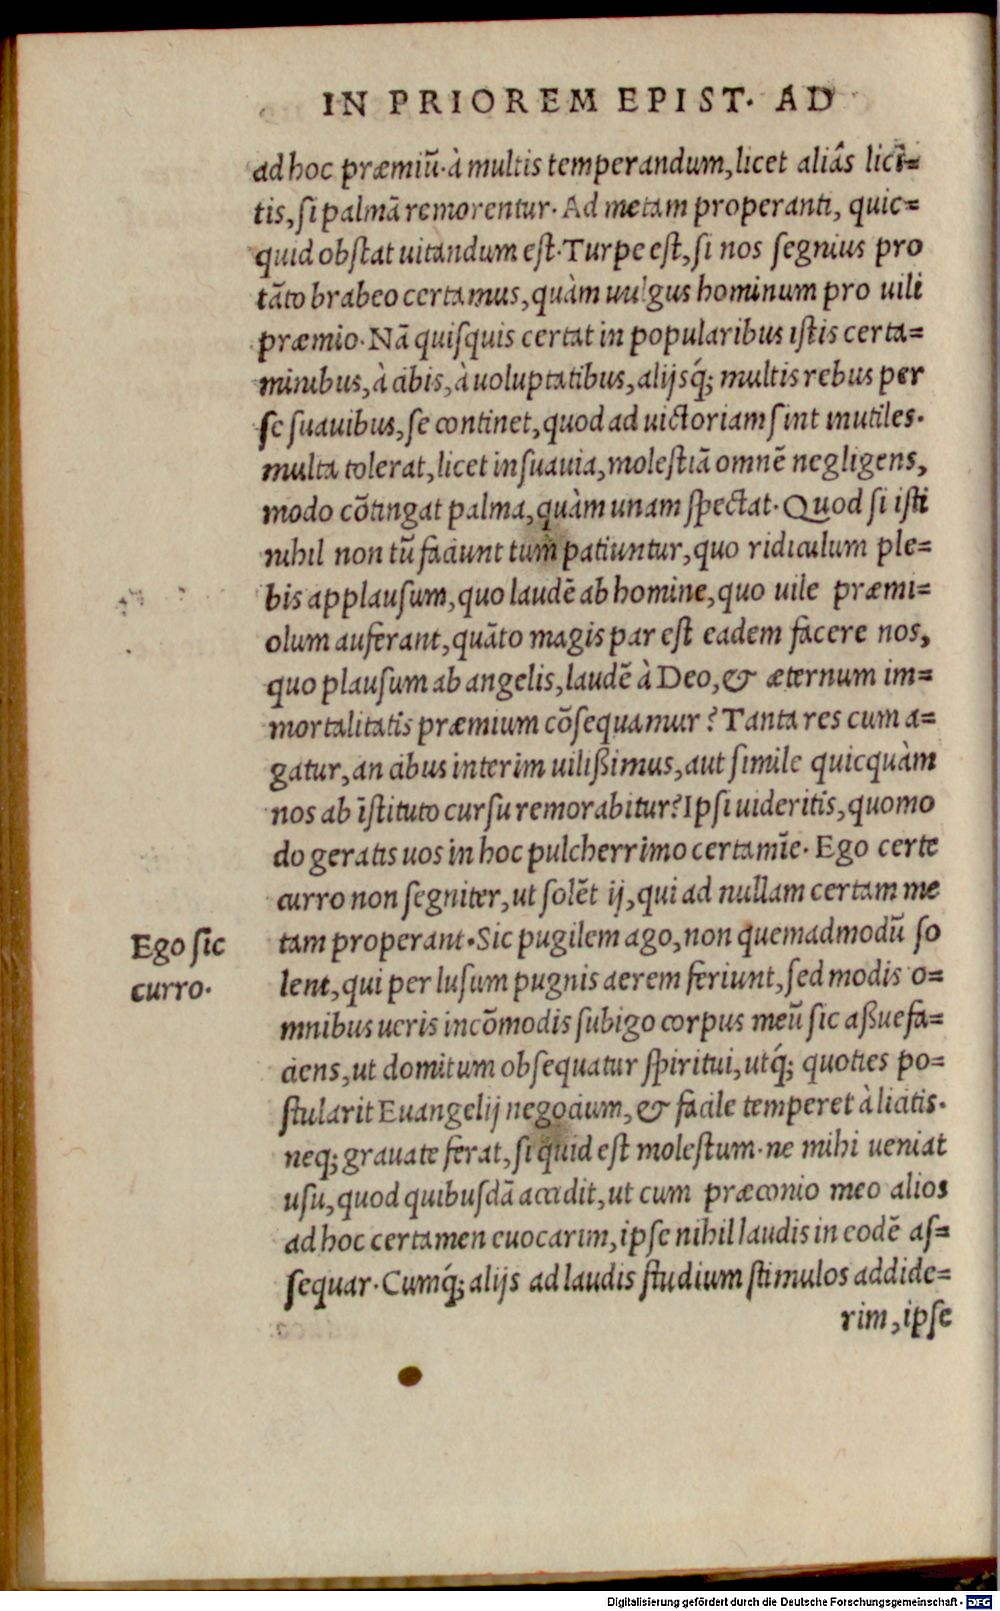 IN PRIOREM EPIST. AD
ad hoc præmiũ. à multis temperandum, licet aliâs lici=
tis, si palmã remorentur. Ad metam properanti, quic=
quid obstat uitandum est. Turpe est, si nos segnius pro
tãto brabeo certamus, quàm uulgus hominum pro uili
præmio. Nã quisquis certat in popularibus istis certa=
minibus, à cibis, à uoluptatibus, alijsq́; multis rebus per
se suauibus, se continet, quod ad uictoriam sint inutiles.
multa tolerat, licet insuauia, molestiã omnẽ negligens,
modo cõtingat palma, quàm unam spectat. Quod si isti
nihil non tũ faciunt tum patiuntur, quo ridiculum ple=
bis applausum, quo laudẽ ab homine, quo uile præmi=
olum auferant, quãto magis par est eadem facere nos,
quo plausum ab angelis, laudẽ à Deo, & æternum im=
mortalitatis præmium cõsequamur? Tanta res cum a=
gatur, an cibus interim uilißimus, aut simile quicquàm
nos ab ĩstituto cursu remorabitur? Ipsi uideritis, quomo
do geratis uos in hoc pulcherrimo certamĩe. Ego certe
curro non segniter, ut solẽt ij, qui ad nullam certam me
Ego sic
curro.
tam properant. Sic pugilem ago, non quemadmodũ so
lent, qui per lusum pugnis aerem feriunt, sed modis o=
mnibus ueris incõmodis subigo corpus meũ sic aßuefa=
ciens, ut domitum obsequatur spiritui, utq́; quoties po=
stularit Euangelij negocium, & facile temperet à licitis.
neq; grauate ferat, si quid est molestum. ne mihi ueniat
usu, quod quibusdã accidit, ut cum præconio meo alios
ad hoc certamen euocarim, ipse nihil laudis in eodẽ as=
sequar. Cumq́; alijs ad laudis studium stimulos addide=
rim, ipse
Digitalisierung gefördert durch die Deutsche Forschungsgemeinschaft - DFG